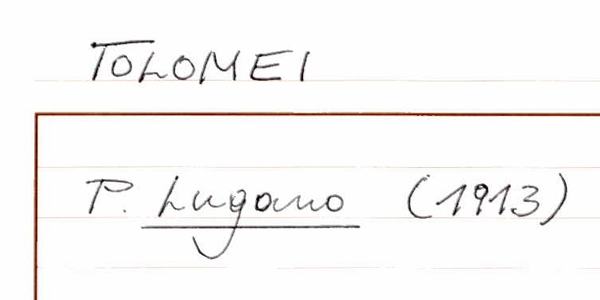 TOLOMEI
P. Lugano (1913)